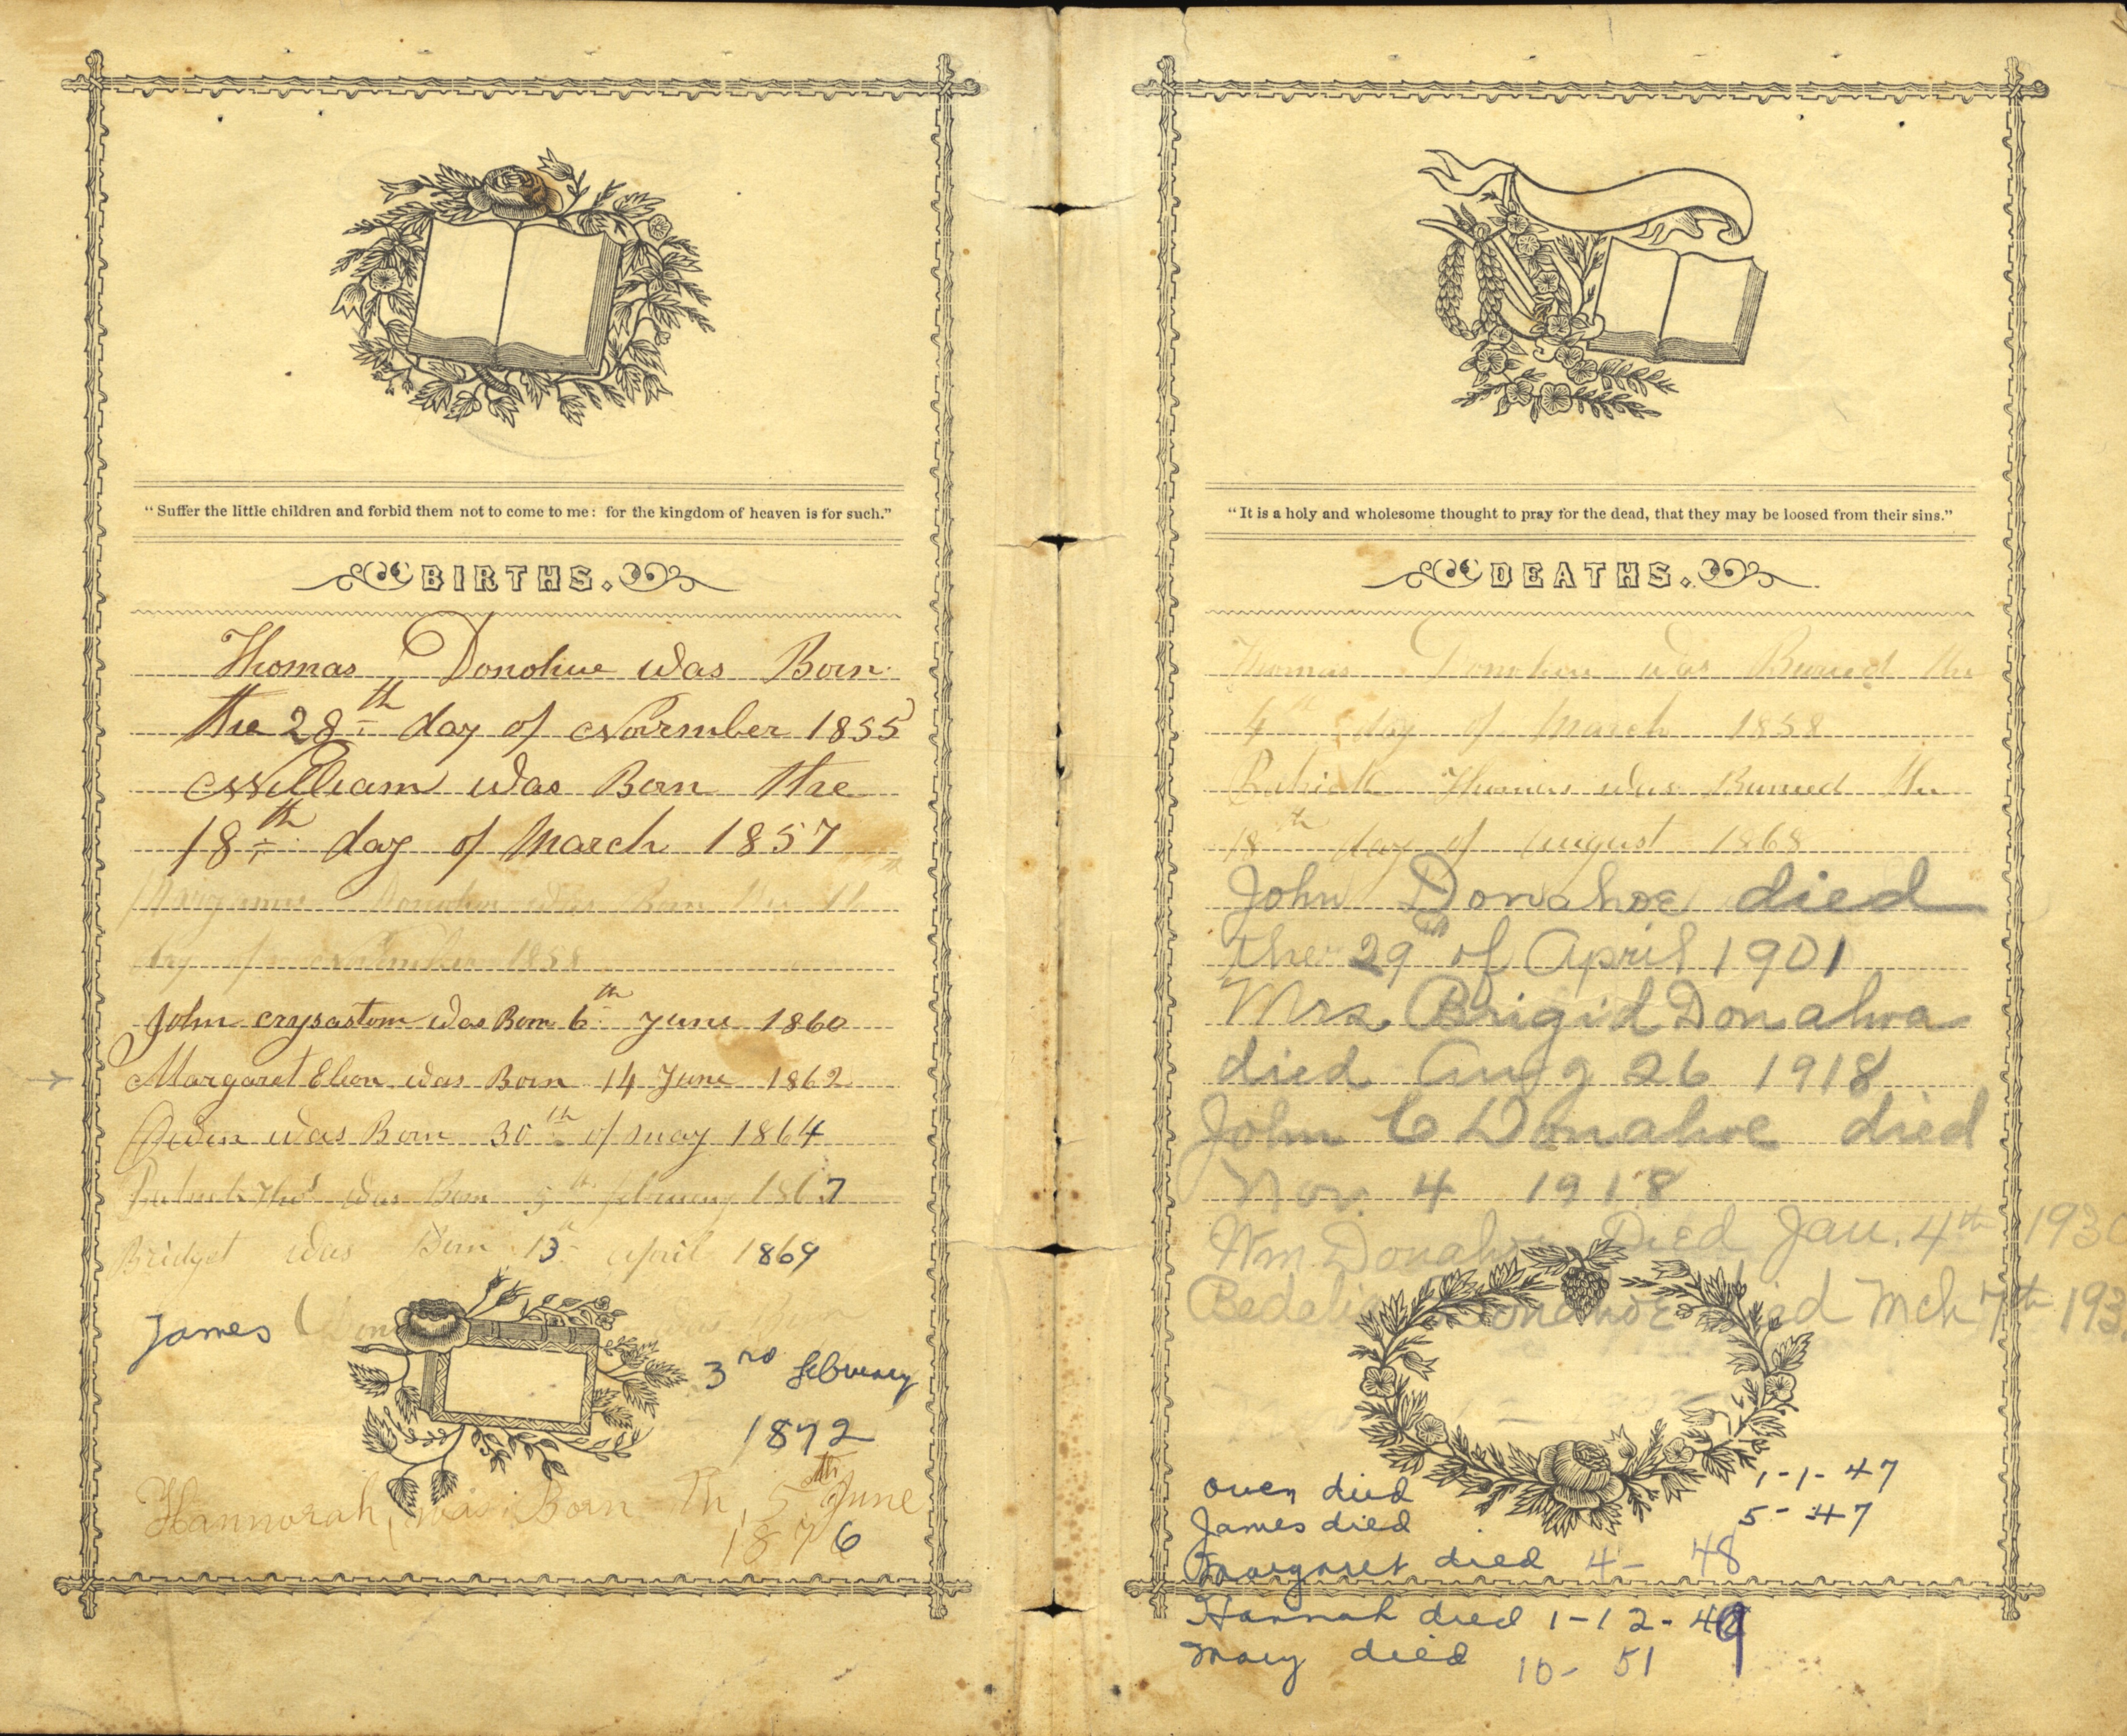 "Suffer the little children and forbid them not to come to me: for the kingdom of heaven is for such."
BIRTHS.
Thomas Donohue was Born
the 28th day of November 1855
William was Born the
18th day of March 1857
Donohue was Born the 16th
day of November 1858
John crysastom was Born 6th June 1860
Margaret Elien was Born 14 June 1862
Owen was Born 30th of may 1864
Patrick Thos was Born 5th february 1867
Bridget was Born 13th april 1869
James was Born
3rd february
1872
Hannorah, was Born Th, 5th June
1876
"It is a holy and wholesome thought to pray for the dead, that they may be loosed from their sins."
DEATHS.
Thomas Donohue was Buried the
4th day of March 1858
Patrick Thomas was Buried the
18th day of august 1868
John Donahoe died
the 29th of April 1901
Mrs Brigid Donahoa
died Aug 26 1918
John C Donahoe died
Nov. 4 1918
Wm Donahoe Died Jan. 4th 1930
Bedelia Donahoe died Mch 7th 193
owen died 1-1-47
James died 5-47
Margaret died 4- 48
Hannah died 1-12-49
Mary died 10- 51